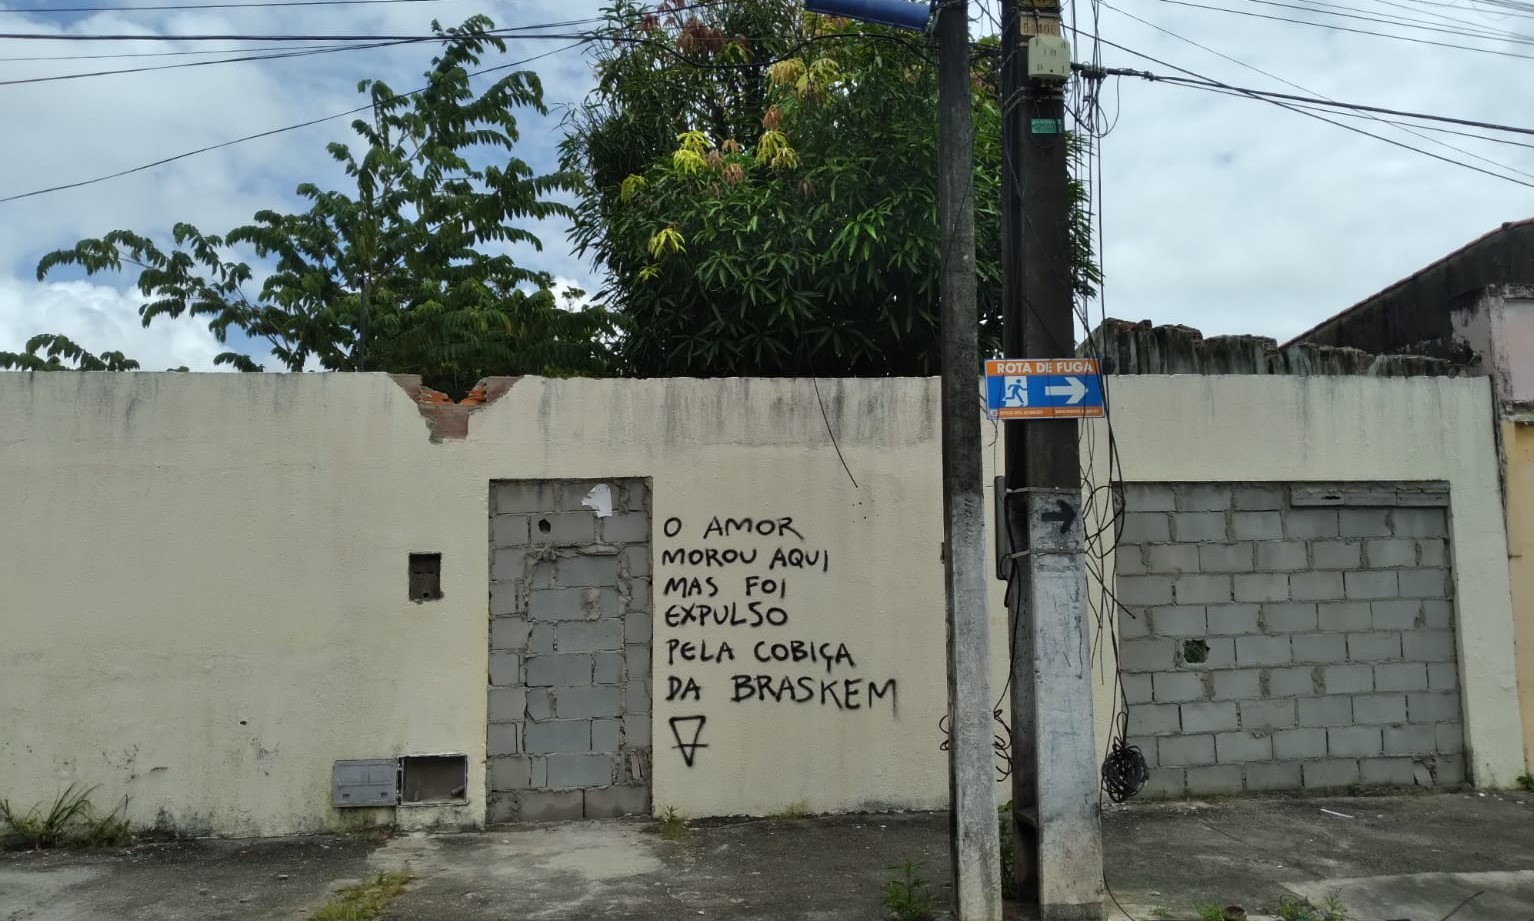 ROTA DE FUGA
O AMOR
MOROU AQUI
MAS FOI
EXPULSO
PELA COBIÇA
DA BRASKEM